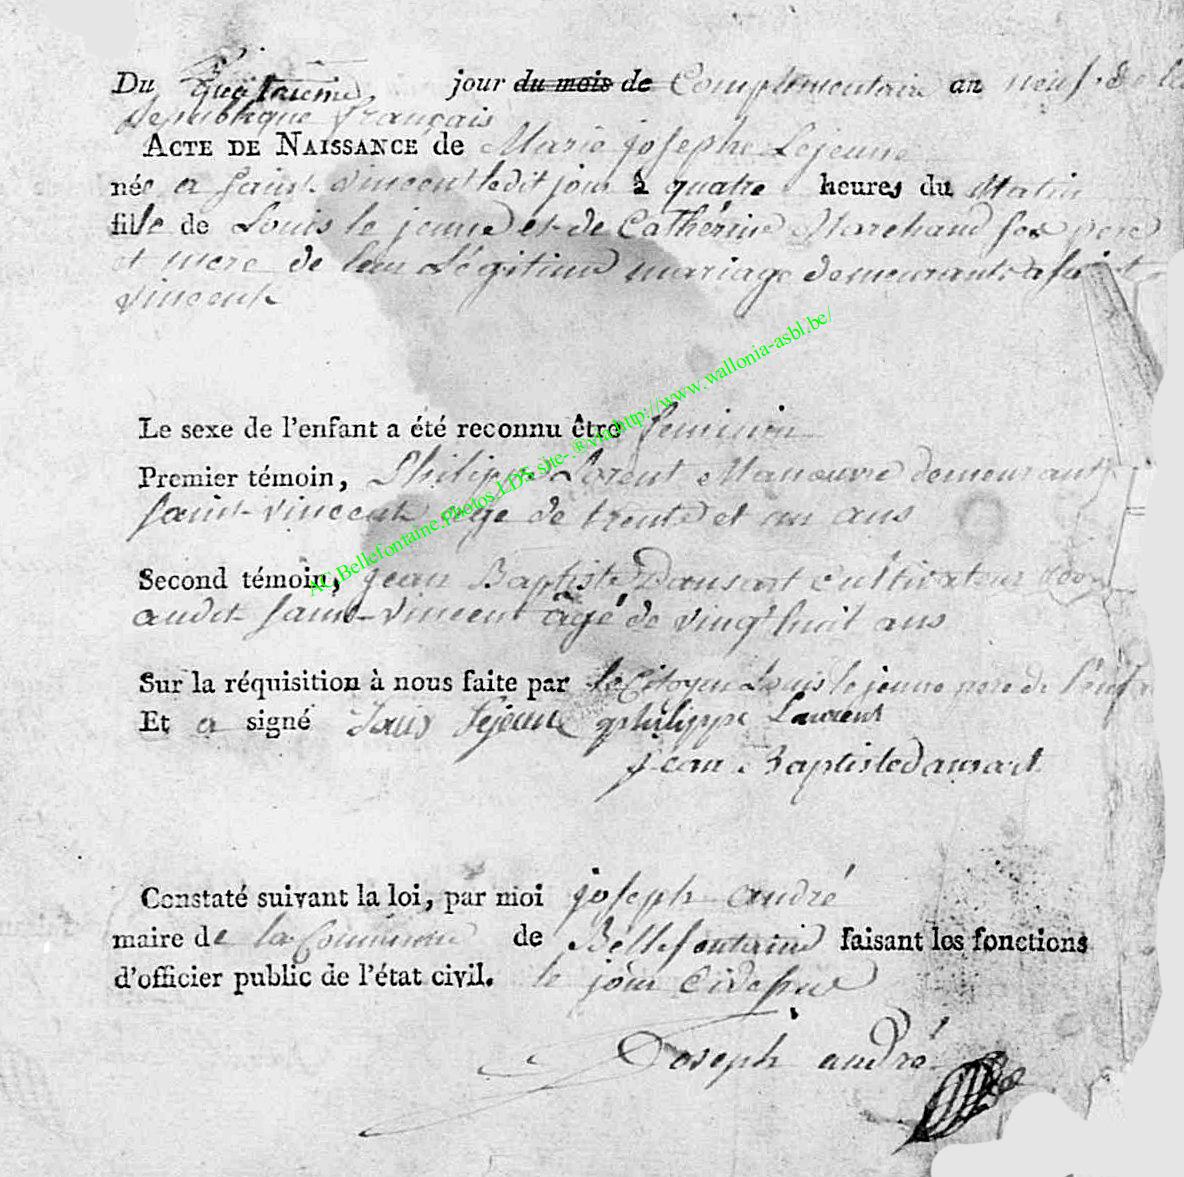 Du quatrieme jour du mois de Complementaire an neuf de la
Republique français
ACTE DE NAISSANCE de Marie josephe Lejeune
née a saint vincent ledit jour à quatre heures du Matin
fille de Louis le jeune et de Catherine Marchand ses pere
et mere de leur Légitime mariage demeurants a saint
vincent
Le sexe de l'enfant a été reconnu être feminin
Premier témoin, Philippe Lorent Manœuvre demeurant
saint vincent age de trente et un ans
Second témoin, jean Baptiste Dausart Cultivateur
audit saint-vincent agé de vingt huit ans
Sur la réquisition à nous faite par le Citoyen Louis le jeune pere de l'enfant
Et a signé Louis Lejeune philippe Laurent
jean Baptiste dausart
Constaté suivant la loi, par moi joseph andré
maire de la Commune de Bellefontaine faisant les fonctions
d'officier public de l'état civil. le jour
Joseph andré
AC.Bellefontaine.Photos LDS site-®via http://www.wallonia-asbl.be/